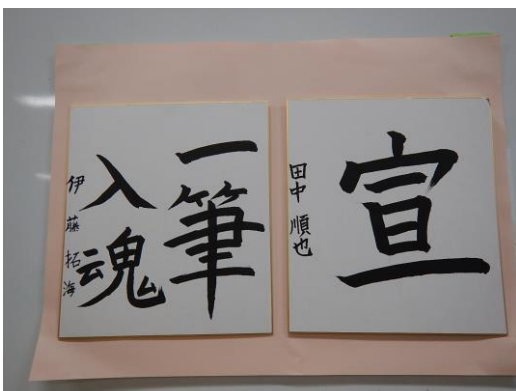 宣
田中 順也
一筆
入魂
伊藤拓海